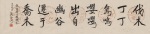 伐木
丁丁
鳥鳴
嚶嚶
出自
幽谷
遷于
喬木